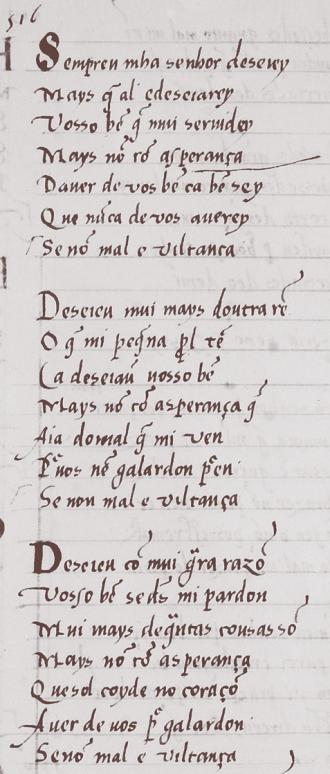 516
Sempreu mha senhor deseiey
Mays q̄ al e deseiarey
Vosso bẽ q̄ mui seruidey
Mays nõ cõ asperança
Dauer de vos bẽ ca bẽ sey
Que nũca de vos auerey
Se nõ mal e viltança
Deseieu mui mays doutra rẽ
O q̄ mi peq̄na prol tẽ
Ca deseiau vosso bẽ
Mays nõ cõ asperança q̄
Aia do mal q̄ mi ven
Per vos nẽ galardon prẽn
Se non mal e viltança
Deseieu cõ mui gr̃a razõ
Vosso bẽ se ds̄ mi pardon
Mui mays de q̃ntas cousas sõ
Mays nõ cõ asperança
Que sol coyde no coraçõ
Auer de vos pr̃ galardon
Se nõ mal e viltança